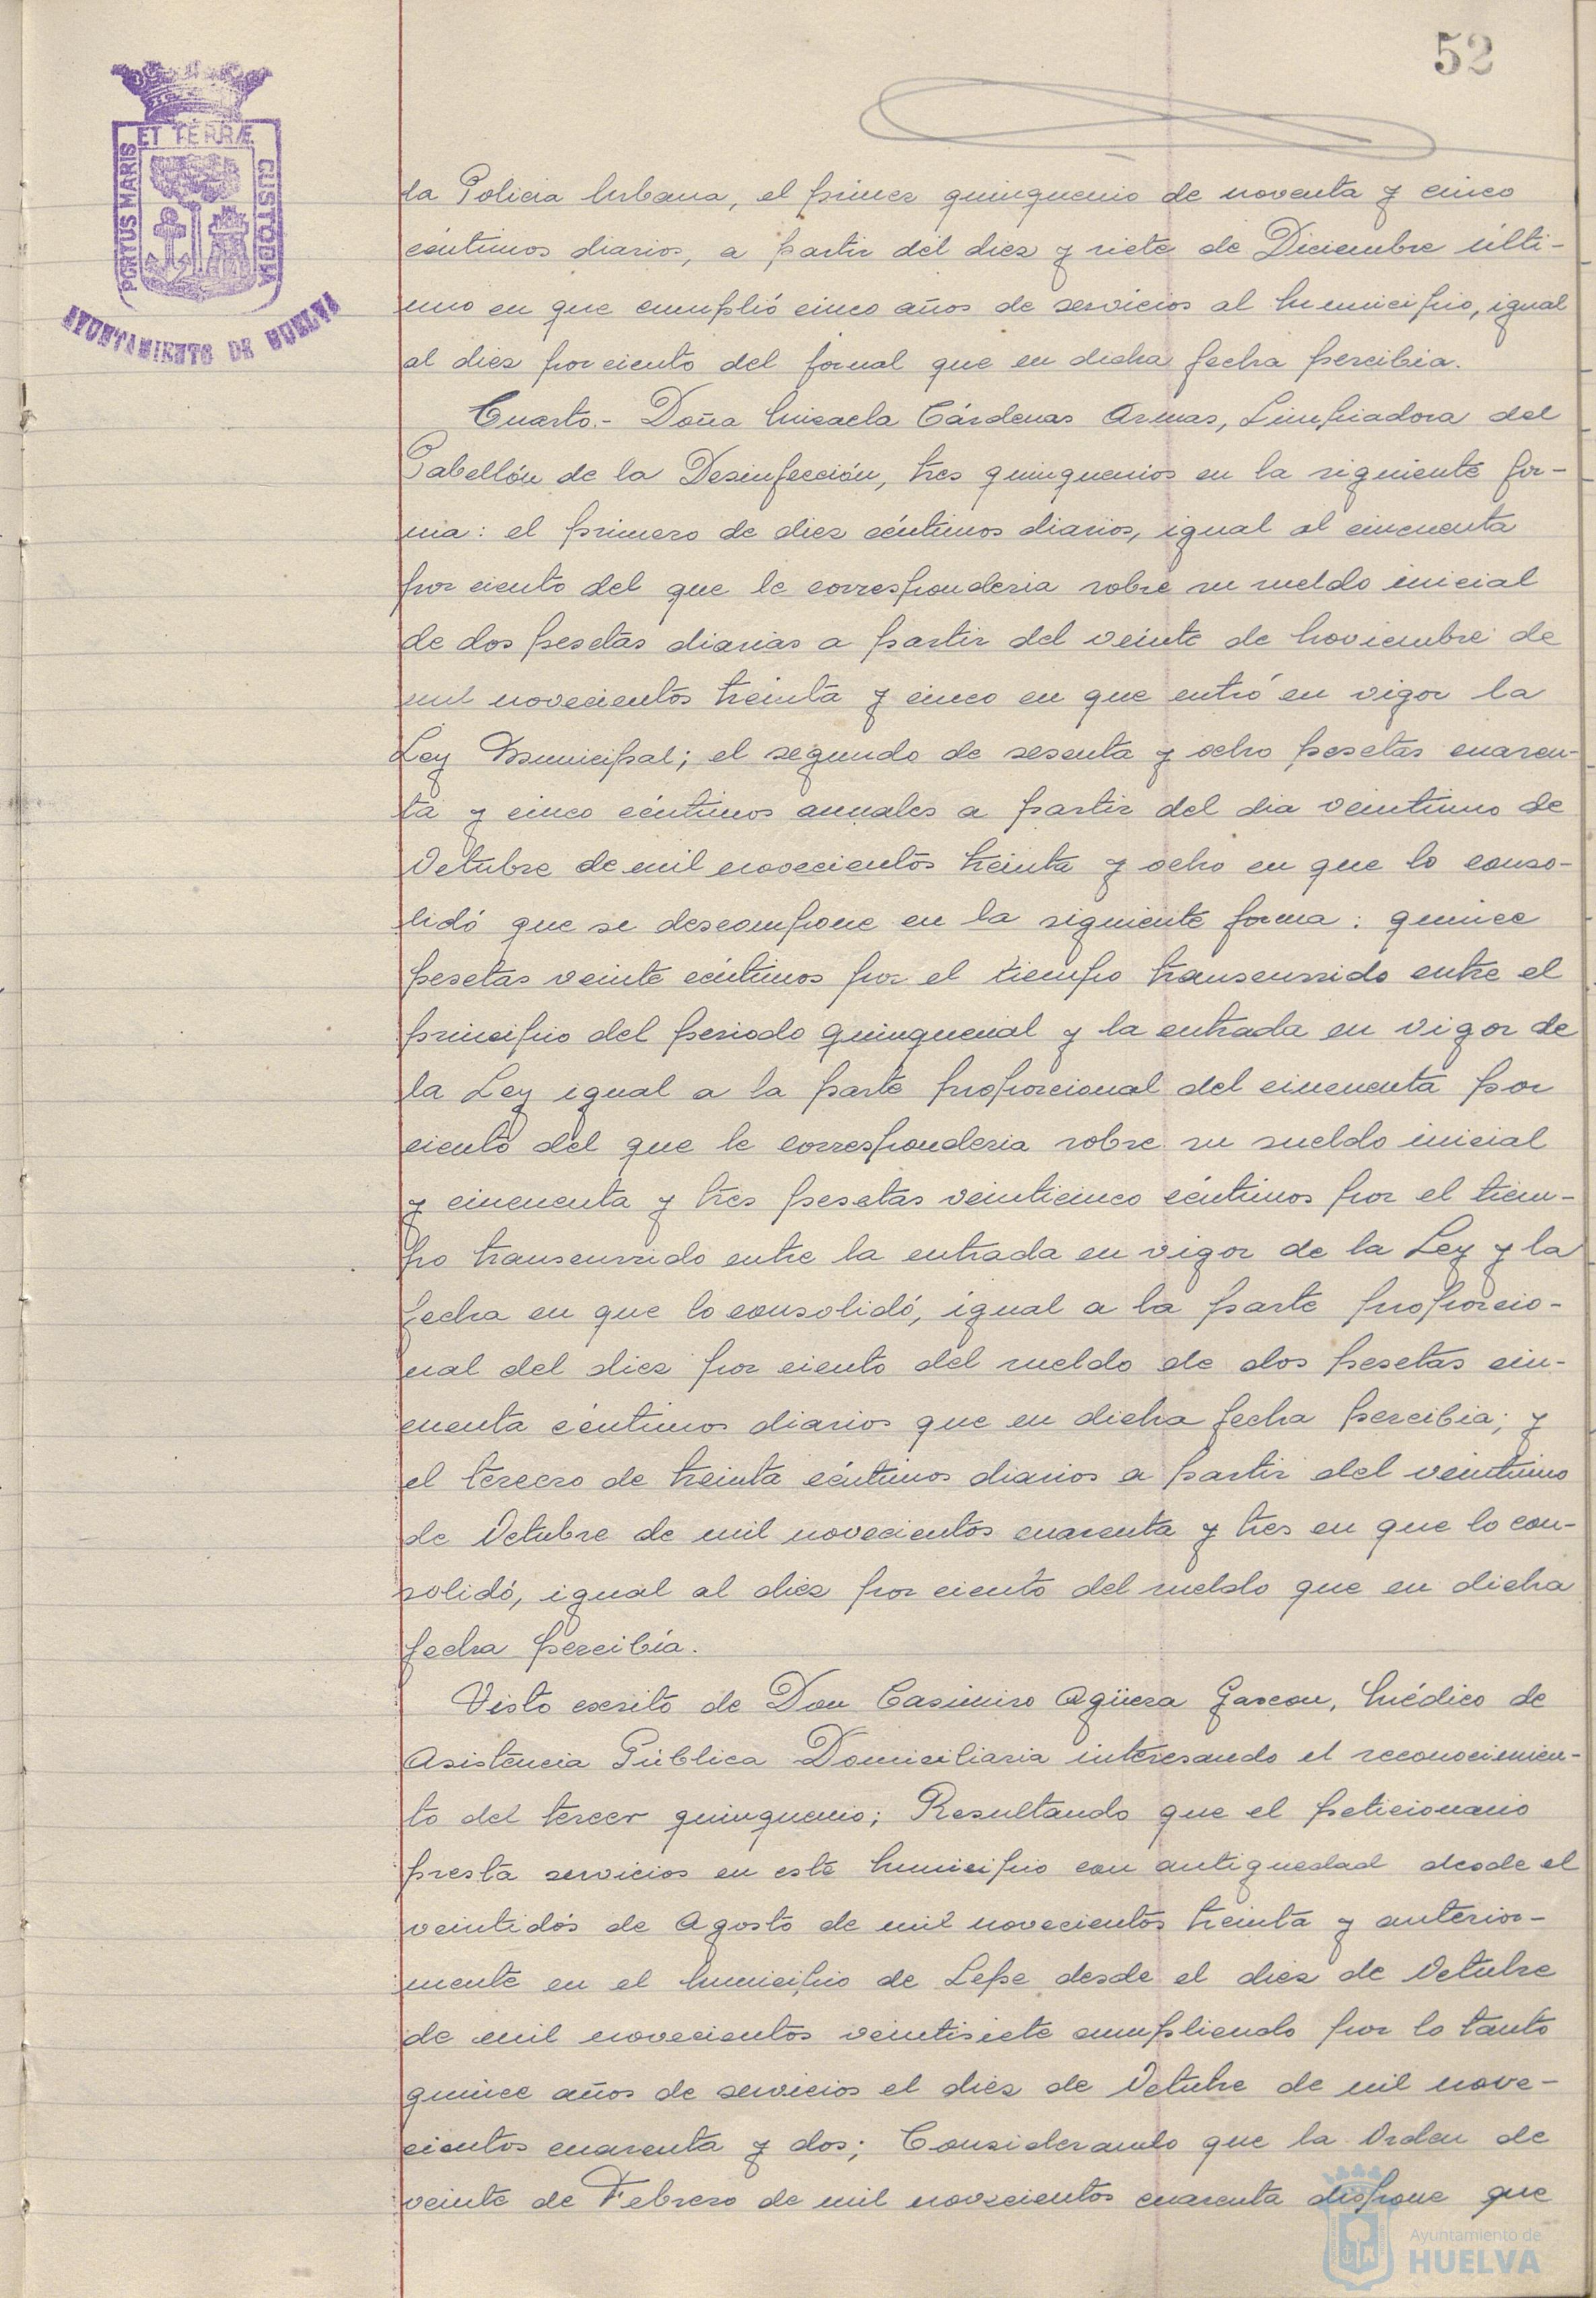 52
PORTUS MARIS ET TERRÆ CUSTODIA
AYUNTAMIENTO DE HUELVA
la Policia Urbana, el primer quinquenio de noventa y cinco
céntimos diarios, a partir del diez y siete de Diciembre últi-
mo en que cumplió cinco años de servicios al Municipio, igual
al diez por ciento del jornal que en dicha fecha percibia.
Cuarto.- Doña Micaela Cárdenas Armas, Limpiadora del
Pabellón de la Desinfección, tres quinquenios en la siguiente for-
ma: el primero de diez céntimos diarios, igual al cincuenta
por ciento del que le corresponderia sobre su sueldo inicial
de dos pesetas diarias a partir del veinte de Noviembre de
mil novecientos treinta y cinco en que entró en vigor la
Ley Municipal; el segundo de sesenta y ocho pesetas cuaren-
ta y cinco céntimos anuales a partir del dia veintiuno de
Octubre de mil novecientos treinta y ocho en que lo conso-
lidó que se descompone en la siguiente forma: quince
pesetas veinte céntimos por el tiempo transcurrido entre el
principio del periodo quinquenal y la entrada en vigor de
la Ley igual a la parte proporcional del cincuenta por
ciento del que le corresponderia sobre su sueldo inicial
y cincuenta y tres pesetas veinticinco céntimos por el tiem-
po transcurrido entre la entrada en vigor de la Ley y la
fecha en que lo consolidó, igual a la parte proporcio-
nal del diez por ciento del sueldo de dos pesetas cin-
cuenta céntimos diarios que en dicha fecha percibia; y
el tercero de treinta céntimos diarios a partir del veintiuno
de Octubre de mil novecientos cuarenta y tres en que lo con-
solidó, igual al diez por ciento del sueldo que en dicha
fecha percibía.
Visto escrito de Don Casimiro Agüera Gascon, Médico de
Asistencia Pública Domiciliaria interesando el reconocimien-
to del tercer quinquenio; Resultando que el peticionario
presta servicios en este Municipio con antiguedad desde el
veintidós de Agosto de mil novecientos treinta y anterior-
mente en el Municipio de Lepe desde el diez de Octubre
de mil novecientos veintisiete cumpliendo por lo tanto
quince años de servicios el diez de Octubre de mil nove-
cientos cuarenta y dos; Considerando que la Orden de
veinte de Febrero de mil novecientos cuarenta dispone que
Ayuntamiento de
HUELVA